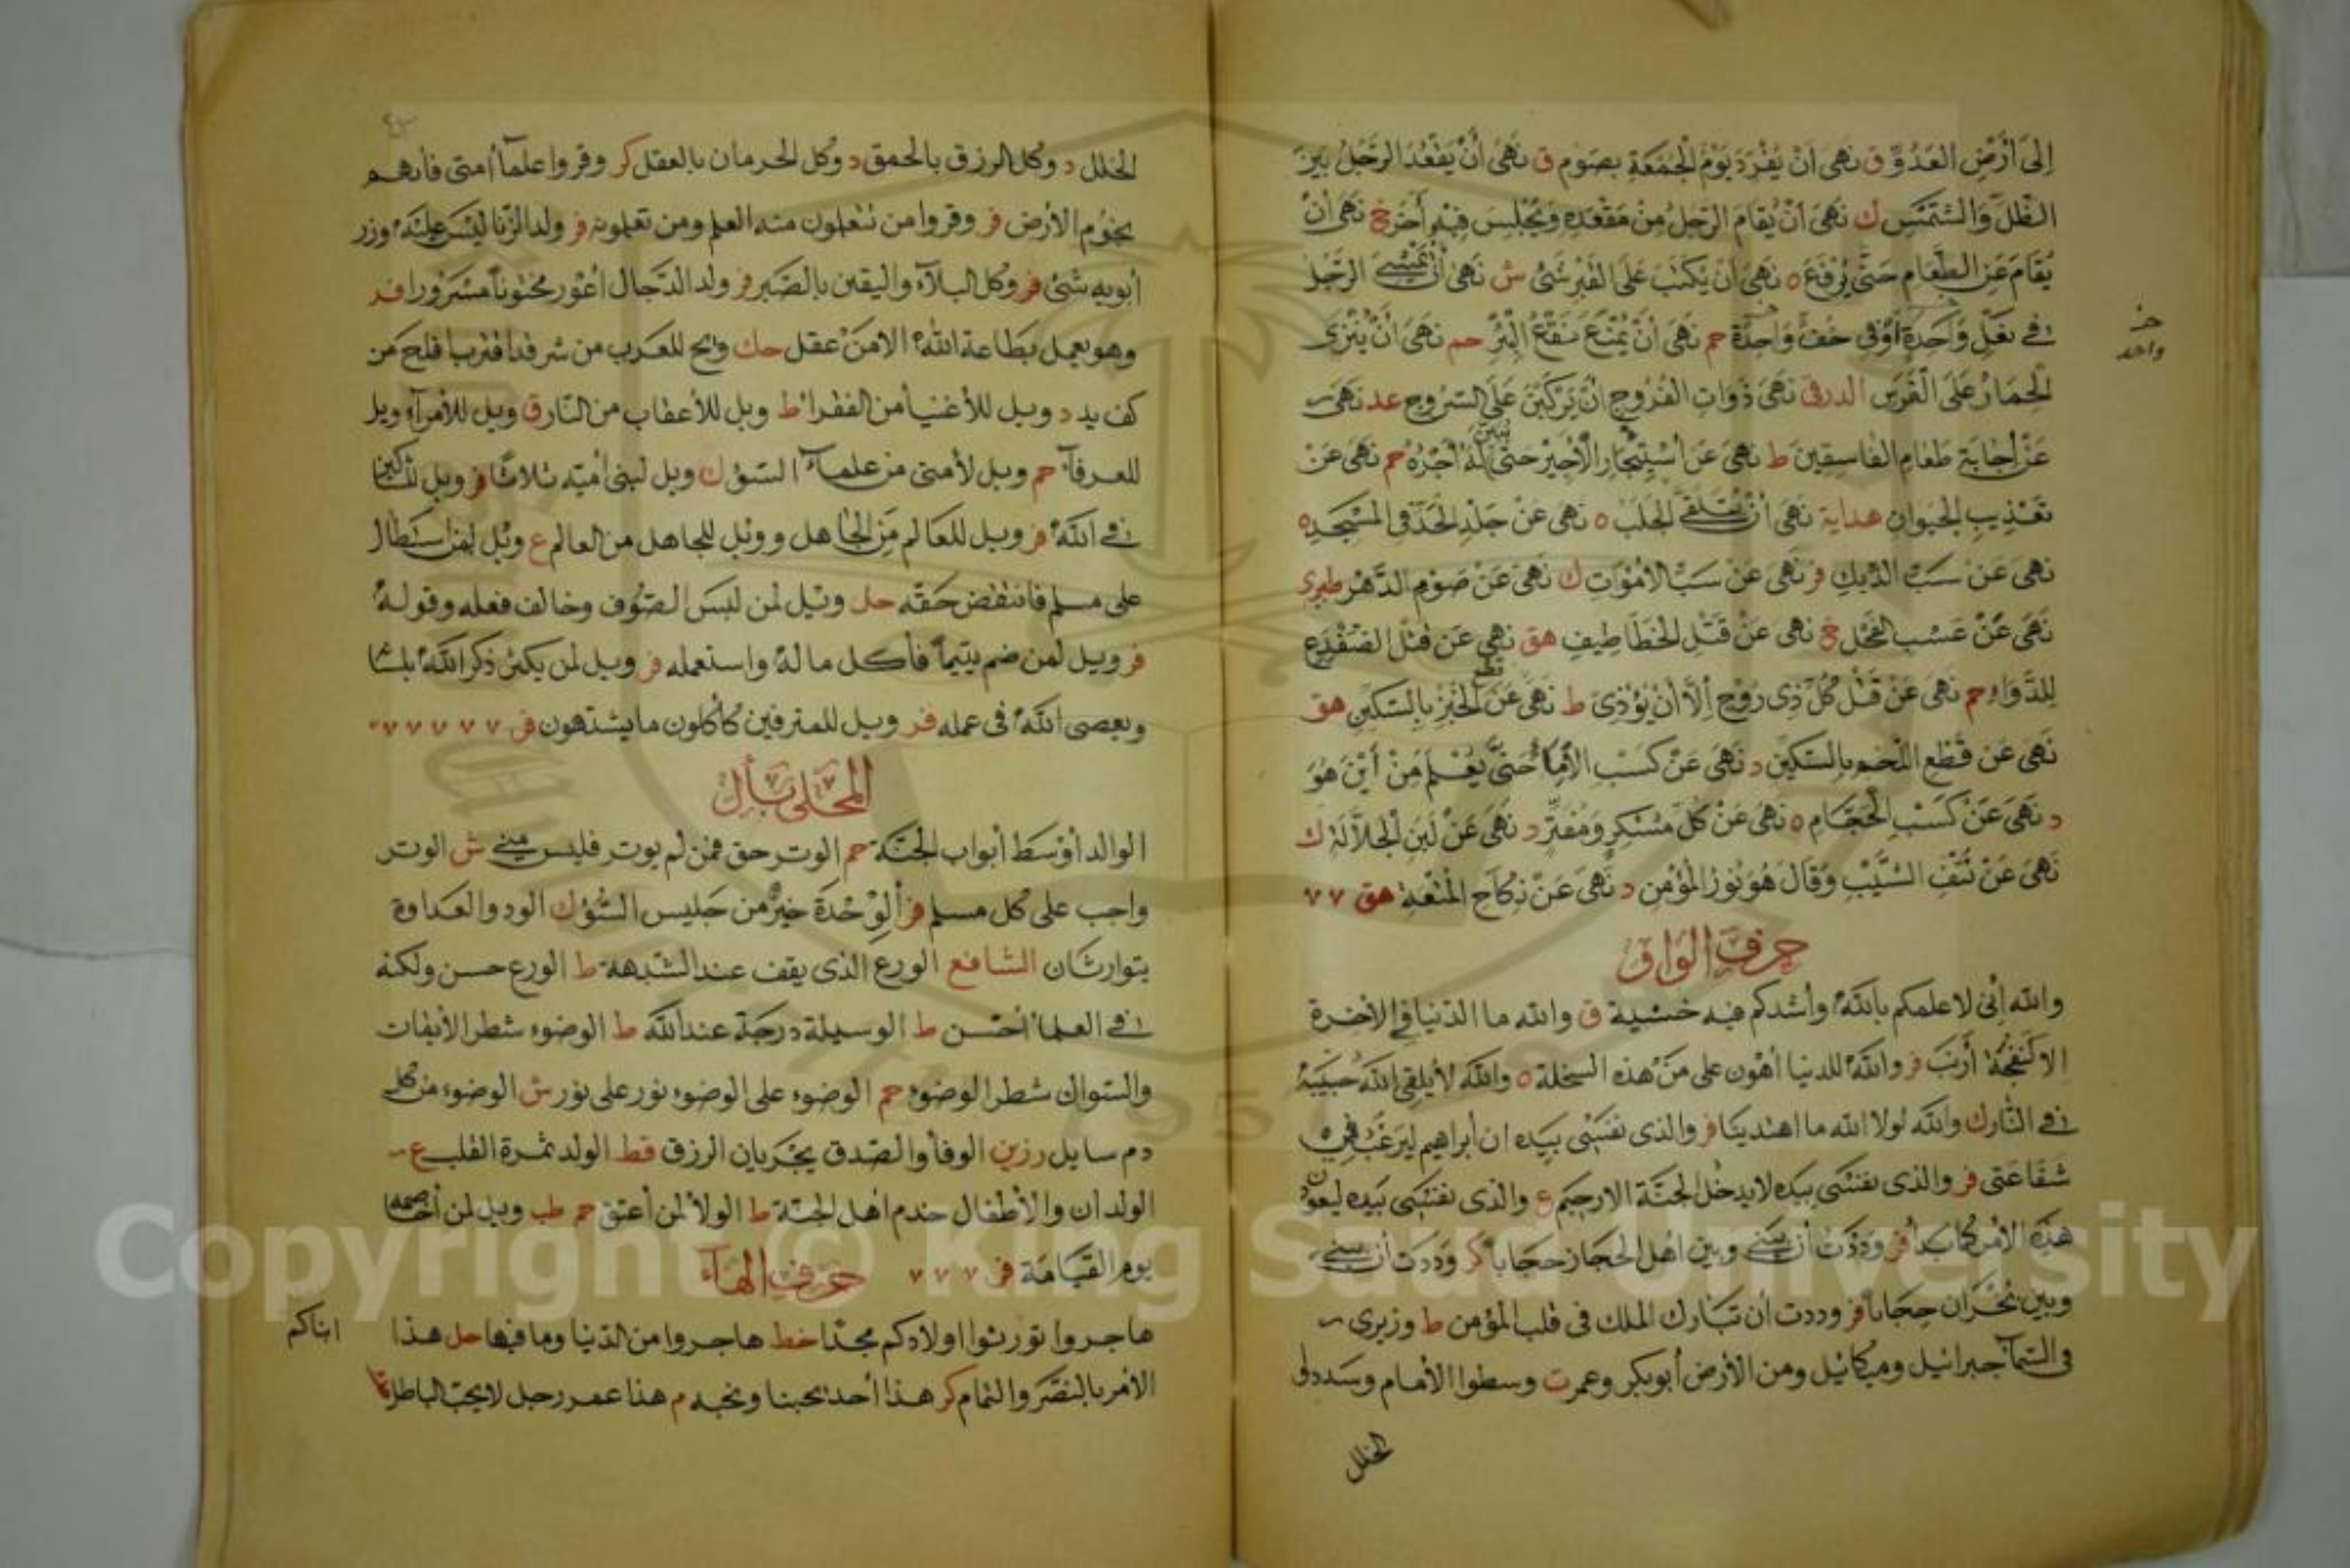 إلى أرض العدو ق نهى أن يفرد يوم الجمعة بصوم ق نهى أن يقعد الرجل بين
الظل والشمس ك نهى أن يقام الرجل من مقعده ويجلس فيه آخر خ نهى أن
يقام عن الطعام حتى يرفع ه نهى أن يكتب على القبر شئ ش نهى أن يمشي الرجل
في نعل واحدة أو في خف واحدة حم نهى أن يمنع نقع البئر حم نهى أن ينزى
خف
واحد
الحمار على الفرس نهى ذوات الفروج أن يركبن على السروج عد نهى
عن إجابة طعام الفاسقين ط نهى عن استيجار الأجير حتى يبين له أجره حم نهى عن
تعذيب الحيوان هداية نهى أن يتلقى الجلب ه نهى عن جلد الحد في المسجد ه
نهى عن سب الديك فر نهى عن سب الأموات ك نهى عن صوم الدهر طبري
نهى عن عسب الفحل خ نهى عن قتل الخطاطيف هق نهى عن قتل الضفدع
للدواء حم نهى عن قتل كل ذي روح إلا أن يؤذى ط نهى عن قطع الخبز بالسكين هق
نهى عن قطع اللحم بالسكين د نهى عن كسب الإماء حتى يعلم من أين هو
د نهى عن كسب الحجام ه نهى عن كل مسكر ومفتر د نهى عن لبن الجلالة ك
نهى عن نتف الشيب وقال هو نور المؤمن د نهى عن نكاح المتعة هق ٧ ٧
حرف الواو
والله إني لأعلمكم بالله وأشدكم فيه خشية ق والله ما الدنيا في الآخرة
إلا كنفجة أرنب فر والله للدنيا أهون على من هذه السخلة ه والله لا يلقي الله حبيبه
في النار ك والله لولا الله ما اهتدينا فر والذي نفسي بيده ان ابراهيم ليرغب في
شفاعتى فر والذي نفسي بيده لا يدخل الجنة إلا رحيم ع والذي نفسي بيده ليعودن
هذه الأمر كما بدأ فر وددت أن بيني وبين أهل الحجاز حجابا كر وددت أن بيني
وبين نجران حجابا فر وددت أن تبارك الملك في قلب المؤمن ط وزيري
في السماء جبرائيل وميكائيل ومن الأرض أبو بكر وعمر ت وسطوا الأمام وسددوا
الخلل
الخلل د وكل الرزق بالحمق د وكل الحرمان بالعقل كر وقروا علماء أمتى فإنهم
نجوم الأرض فر وقروا من تتعلمون منه العلم ومن تعلمونه فر ولد الزنا ليس عليه وزر
أبويه شئ فر وكل البلاء واليقين بالصبر فر ولد الدجال أعور مختونا مسرورا فر
وهو يعمل بطاعة الله إلا من عقل حك ويح للعرب من شر قد اقترب أفلح من
كف يده د ويل للأغنياء من الفقراء ط ويل للأعقاب من النار ق ويل للأمراء ويل
للعرفاء حم ويل لأمتى من علماء السوء ك ويل لبنى أمية ثلاثا فر ويل للشاكين
في الله فر ويل للعالم من الجاهل وويل للجاهل من العالم ع ويل لمن استطال
على مسلم فانتقص حقه حل ويل لمن لبس الصوف وخالف فعله وقوله
فر ويل لمن ضم يتيما فأكل ماله واستعمله فر ويل لمن يكثر ذكر الله بلسانه
ويعصي الله في عمله فر ويل للمترفين كأكلون ما يشتهون فر ٧ ٧ ٧ ٧ ٧
المحلى بأل
الوالد أوسط أبواب الجنة حم الوتر حق فمن لم يوتر فليس مني ش الوتر
واجب على كل مسلم فر الوحدة خير من جليس السوء ك الود والعداوة
يتوارثان الشافع الورع الذي يقف عند الشبهة ط الورع حسن ولكنه
في العلماء أحسن ط الوسيلة درجة عند الله ط الوضوء شطر الأيمان
والسواك شطر الوضوء حم الوضوء على الوضوء نور على نور ش الوضوء من كل
دم سايل رزين الوفاء والصدق يجران الرزق قط الولد ثمرة القلب ع
الولدان والأطفال خدم أهل الجنة ط الولاء لمن أعتق حم طب ويل لمن
يوم القيامة فر ٧ ٧ ٧ حرف الهاء
هاجروا تورثوا أولادكم مجدا خط هاجروا من الدنيا وما فيها حل هذا
ابناكم
الأمر بالنصر والتمام كر هذا أحد يحبنا ونحبه م هذا عمر رجل لا يحب الباطل
Copyright © King Saud University
1957